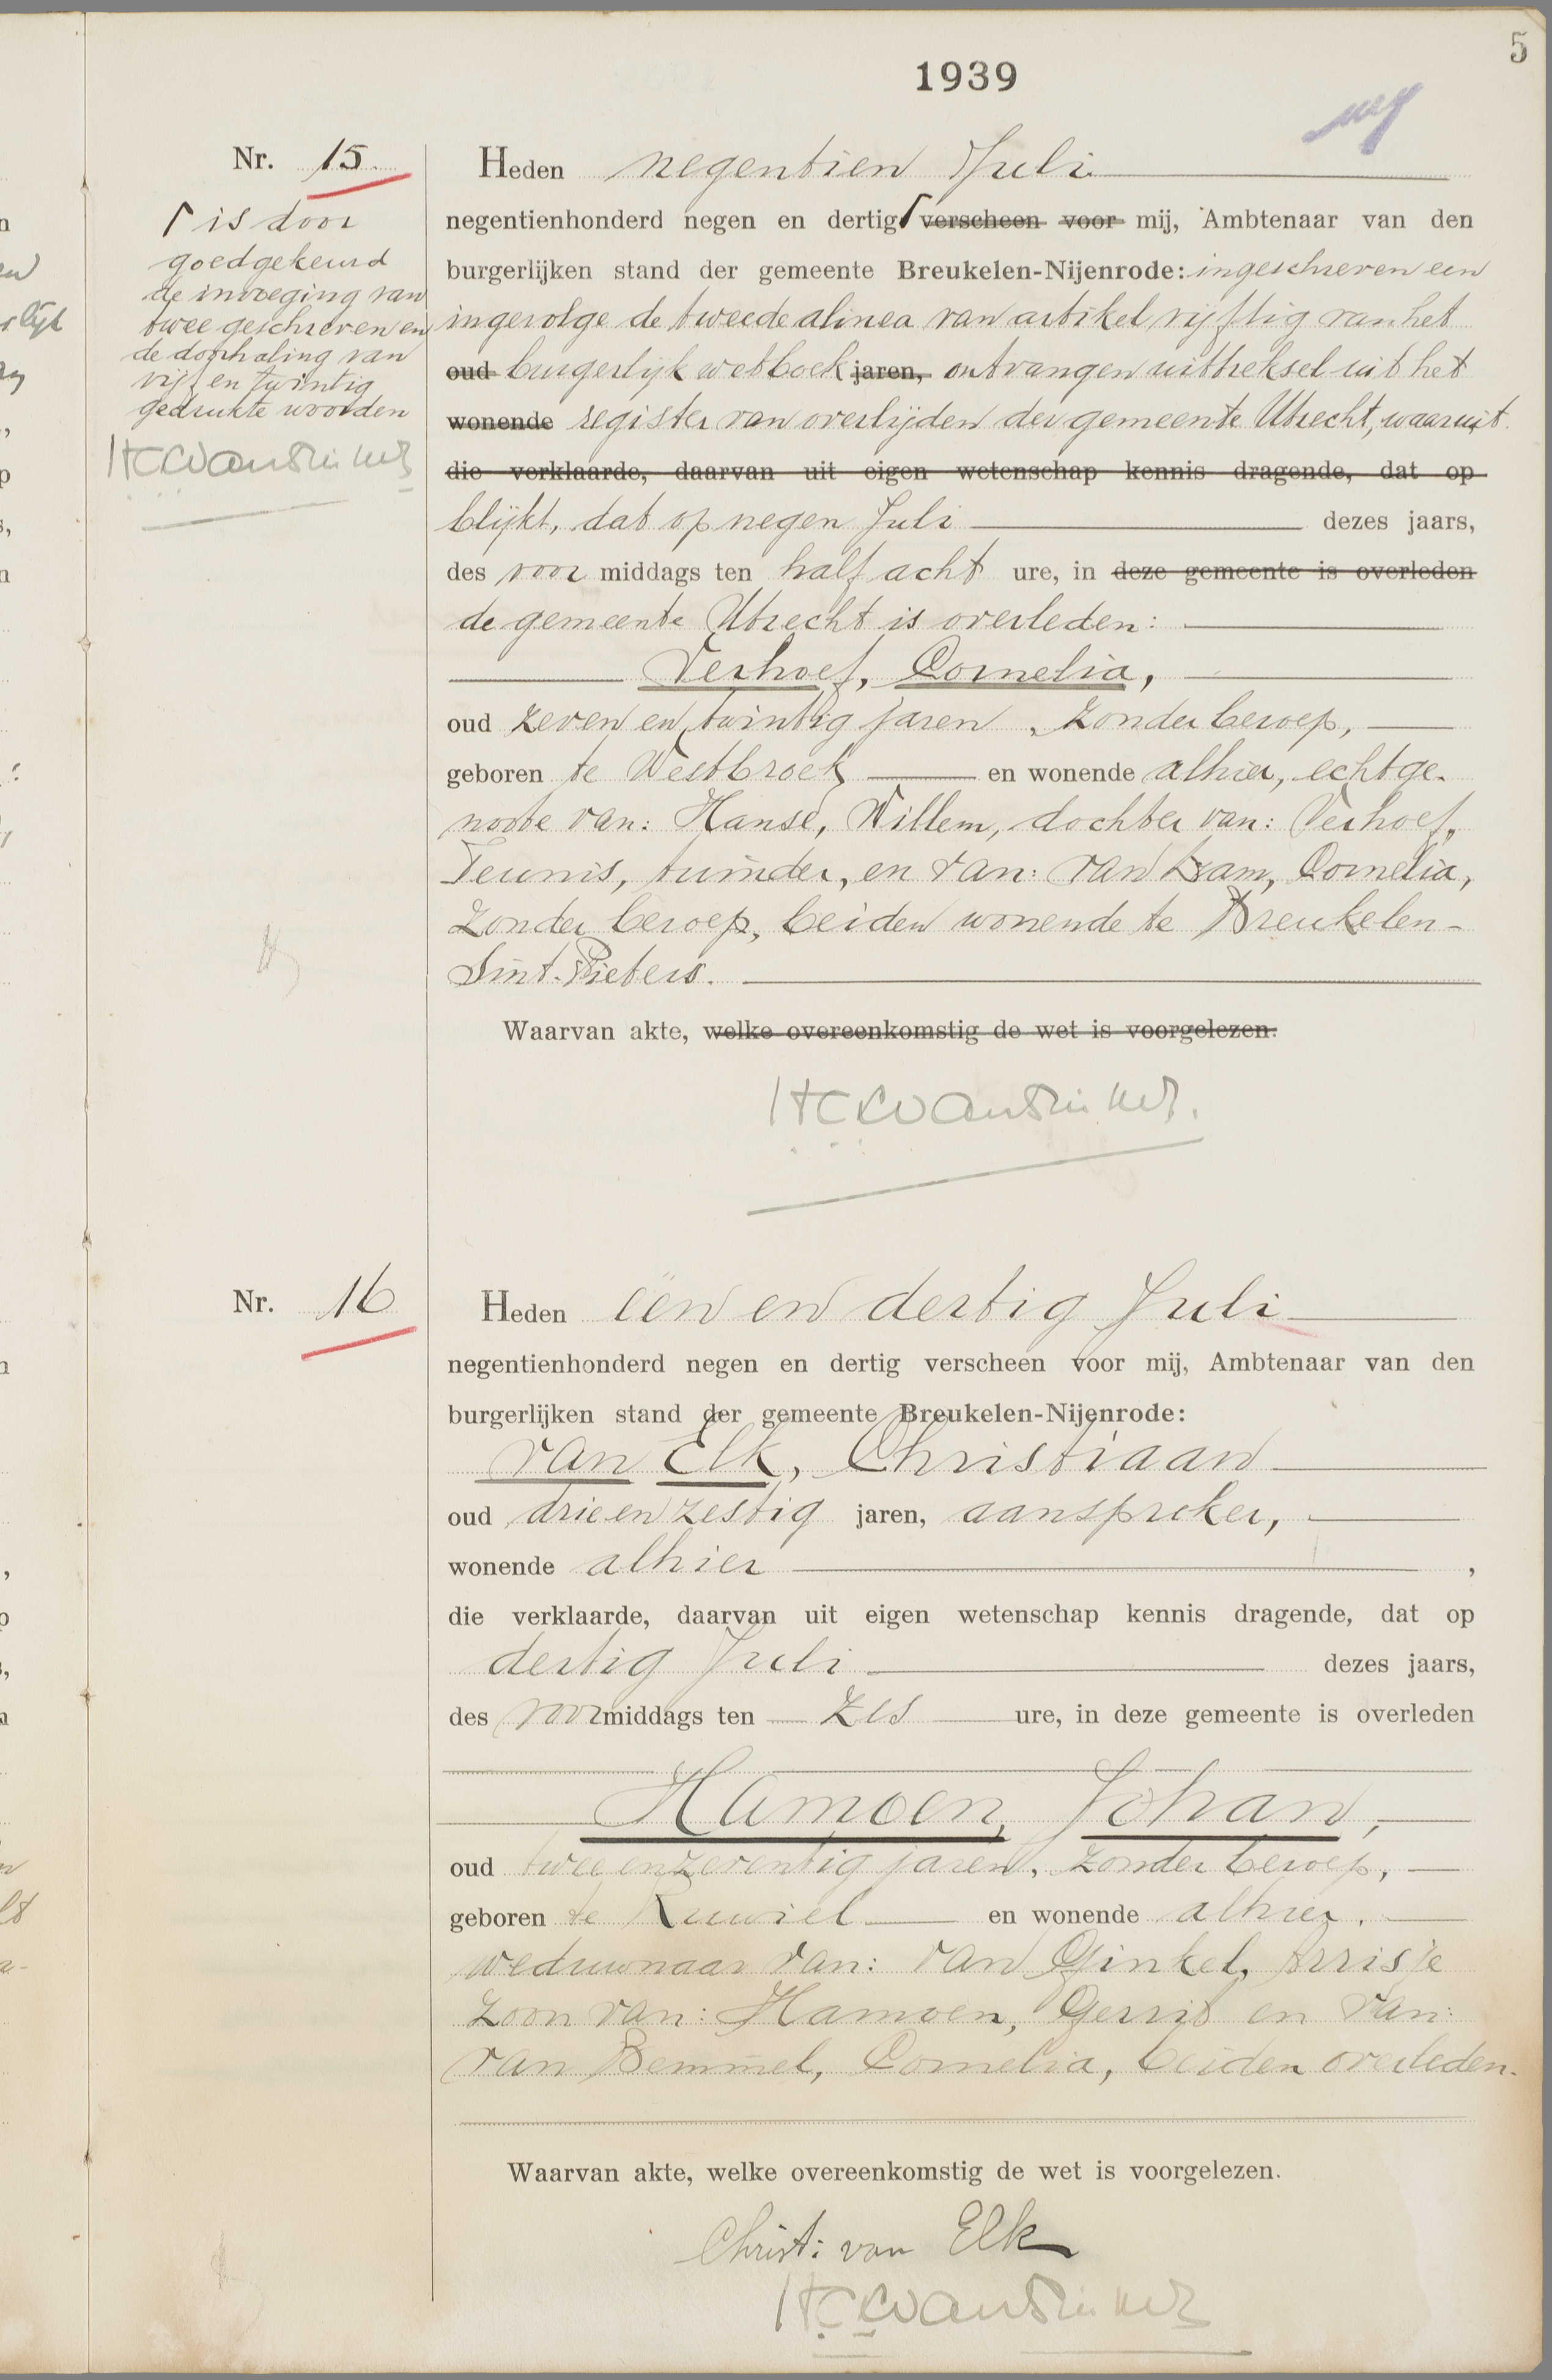 5
1939
Nr. 15.
Heden negentien Juli
negentienhonderd negen en dertig ⌈ verscheen voor mij, Ambtenaar van den
burgerlijken stand der gemeente Breukelen-Nijenrode: ingeschreven een
ingevolge de tweede alinea van artikel vijftig van het
oud burgerlijk wetboek jaren, ontvangen uittreksel uit het
wonende register van overlijden der gemeente Utrecht, waaruit
die verklaarde, daarvan uit eigen wetenschap kennis dragende, dat op
blijkt, dat op negen Juli dezes jaars,
des voor middags ten half acht ure, in deze gemeente is overleden
de gemeente Utrecht is overleden:
Verhoef, Cornelia,
oud zeven en twintig jaren, zonder beroep,
geboren te Westbroek en wonende alhier, echtge-
noote van: Hanse, Willem, dochter van: Verhoef,
Teunis, tuinder, en van: van Dam, Cornelia,
zonder beroep, beiden wonende te Breukelen-
Sint-Pieters.
Waarvan akte, welke overeenkomstig de wet is voorgelezen.
⌈ is door
goedgekeurd
de invoeging van
twee geschreven en
de doorhaling van
vijf en twintig
gedrukte woorden
Nr. 16
Heden één en dertig Juli
negentienhonderd negen en dertig verscheen voor mij, Ambtenaar van den
burgerlijken stand der gemeente Breukelen-Nijenrode:
van Elk, Christiaan
oud drie en zestig jaren, aanspreker,
wonende alhier ,
die verklaarde, daarvan uit eigen wetenschap kennis dragende, dat op
dertig Juli dezes jaars,
des voormiddags ten zes ure, in deze gemeente is overleden
Hamoen, Johan,
oud twee en zeventig jaren, zonder beroep,
geboren te Ruwiel en wonende alhier,
weduwnaar van: van Ginkel, Arrisje
zoon van: Hamoen, Gerrit en van:
van Bemmel, Cornelia, beiden overleden.
Waarvan akte, welke overeenkomstig de wet is voorgelezen.
Christ: van Elk